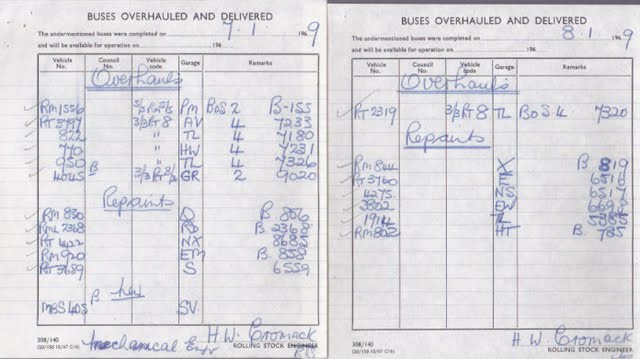 BUSES OVERHAULED AND DELIVERED
The undermentioned buses were completed on 7.1. 1969
and will be available for operation on 196
Vehicle No. Council No. Vehicle code Garage Remarks
Overhauls
RM1556 PM BoS 2 B-155
RT AV 4 7233
822 " TL 4 7180
770 " HW 4 7231
950 " TL 4 7326
4045 B GR 2 9020
Repaints
RM 830 Q B. 856
RML 2368 RD B. 2368
RT 1422 NX 8682
RM 920 EM B. 858
RT 3689 S 6559
B
MBS 403 SV
Mechanical Engr H.W. Cromack
308/140 ROLLING STOCK ENGINEER
BUSES OVERHAULED AND DELIVERED
The undermentioned buses were completed on 8.1. 1969
and will be available for operation on 196
Vehicle No. Council No. Vehicle code Garage Remarks
Overhauls
RT 2319 3/3 RT 8 TL BoS 4 7320
Repaints
RM 844 X B 819
RT 3760 6516
4275 NS 6517
3302 EW
1914 TL
RM 802 HT B. 785
H.W. Cromack
308/140 ROLLING STOCK ENGINEER